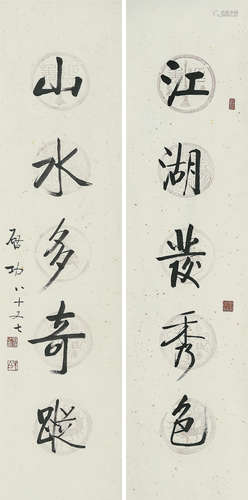 江湖發秀色
山水多奇蹤
啟功八十又七